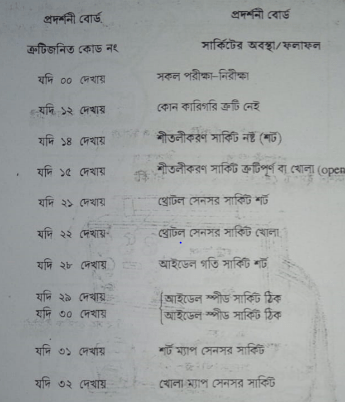 প্রদর্শনী বোর্ড প্রদর্শনী বোর্ড
ত্রুটিজনিত কোড নং সার্কিটের অবস্থা/ফলাফল
যদি ০০ দেখায় সকল পরীক্ষা-নিরীক্ষা
যদি ১২ দেখায় কোন কারিগরি ত্রুটি নেই
যদি ১৪ দেখায় শীতলীকরণ সার্কিট নষ্ট (শর্ট)
যদি ১৫ দেখায় শীতলীকরণ সার্কিট ত্রুটিপূর্ণ বা খোলা (open
যদি ২১ দেখায় থ্রোটল সেনসর সার্কিট শর্ট
যদি ২২ দেখায় থ্রোটল সেনসর সার্কিট খোলা
যদি ২৮ দেখায় আইডেল গতি সার্কিট শর্ট
যদি ২৯ দেখায় আইডেল স্পীড সার্কিট ঠিক
যদি ৩০ দেখায় আইডেল স্পীড সার্কিট ঠিক
যদি ৩১ দেখায় শর্ট ম্যাপ সেনসর সার্কিট
যদি ৩২ দেখায় খোলা ম্যাপ সেনসর সার্কিট